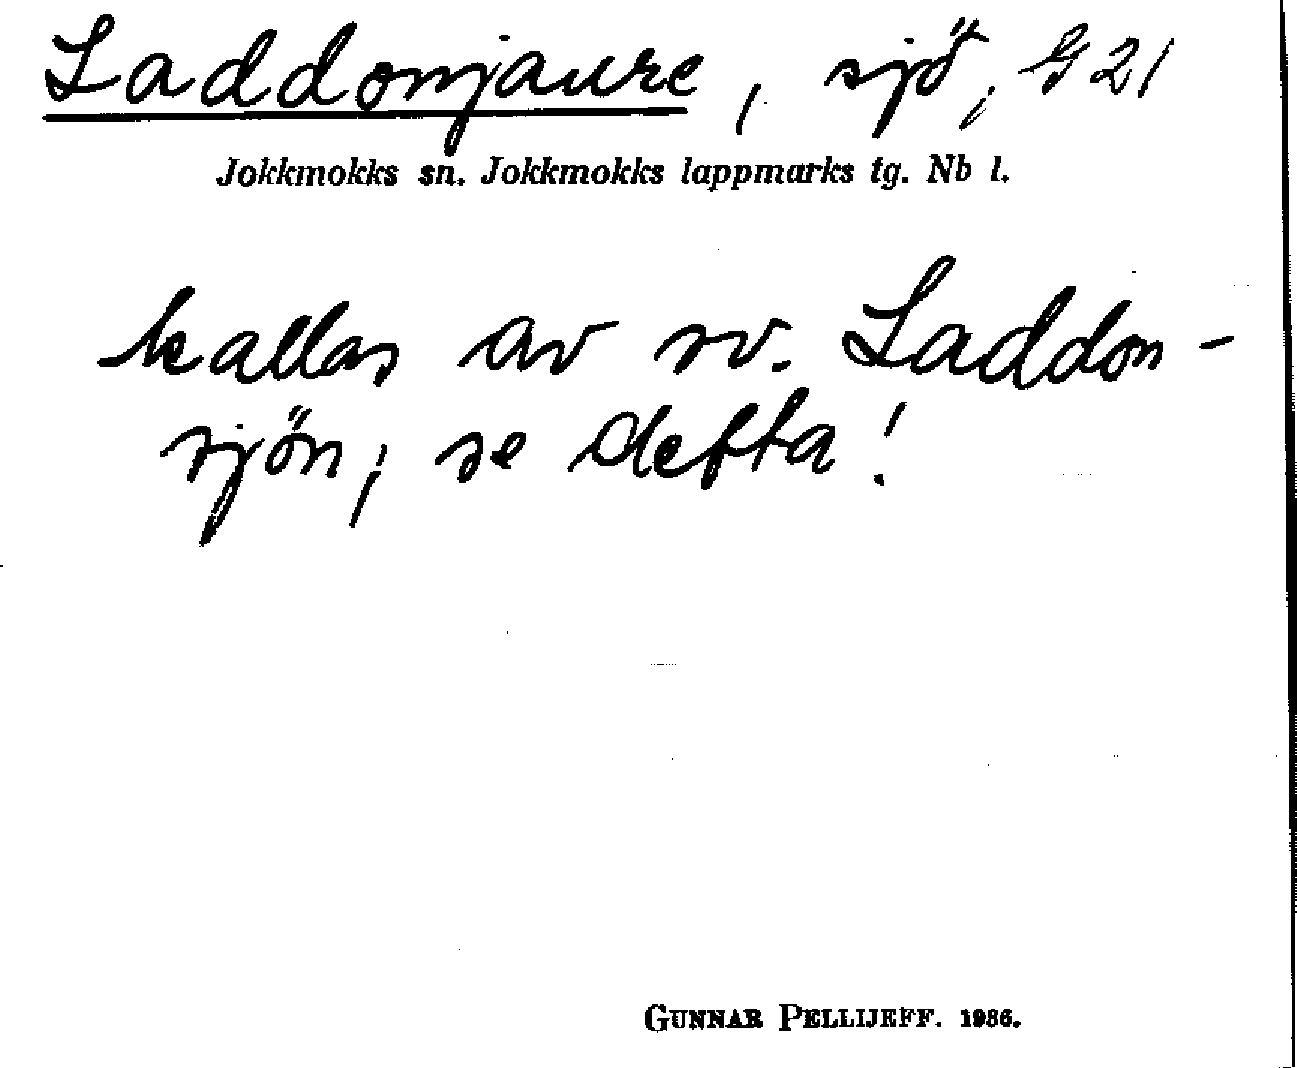 Laddonjaure, sjö, G 21
Jokkmokks sn. Jokkmokks lappmarks tg. Nb l.
kallas av sv. Laddon-
sjön; se detta!
GUNNAR PELLIJEFF. 1986.